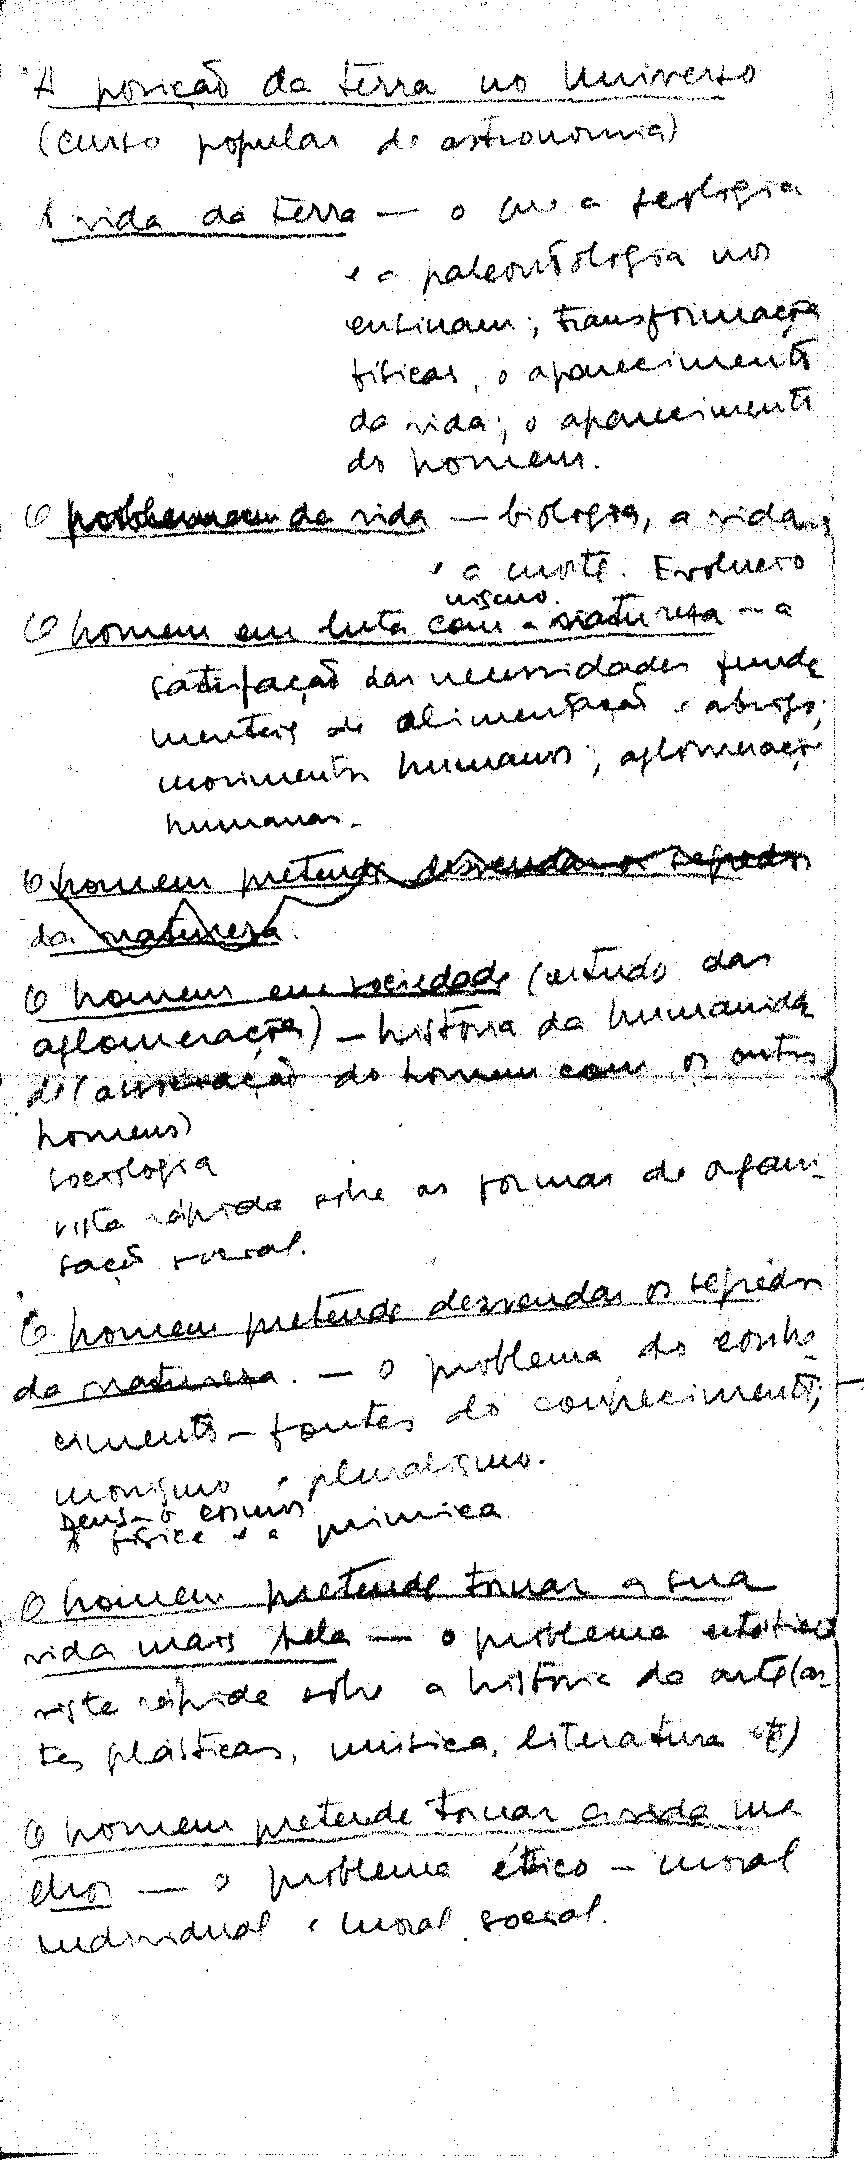 A posição da terra no Universo
(curso popular de astronomia)
A vida da terra — o que a geologia
e a paleontologia nos
ensinam; transformações
físicas, o aparecimento
da vida; o aparecimento
do homem.
O problema da vida — biologia, a vida
e a morte. Evolucio
nismo.
O homem em luta com a natureza — a
satisfação das necessidades funda
mentais de alimentação e abrigo;
movimentos humanos; aglomerações
humanas.
O homem pretende desvendar os segredos
da natureza.
O homem em sociedade (estudo das
aglomerações) — história da humanida
de (associação do homem com os outros
homens)
sociologia
vista rápida sobre as formas de organi-
sação social.
O homem pretende desvendar os segredos
da natureza. — O problema do conhe-
cimento — fontes do conhecimento;
monismo e pluralismo.
Deus — o cosmos
A física e a química
O homem pretende tornar a sua
vida mais bela — o problema estético
vista rápida sobre a história da arte (ar-
tes plásticas, música, literatura etc)
O homem pretende tornar a vida me
lhor — o problema ético — moral
individual e moral social.